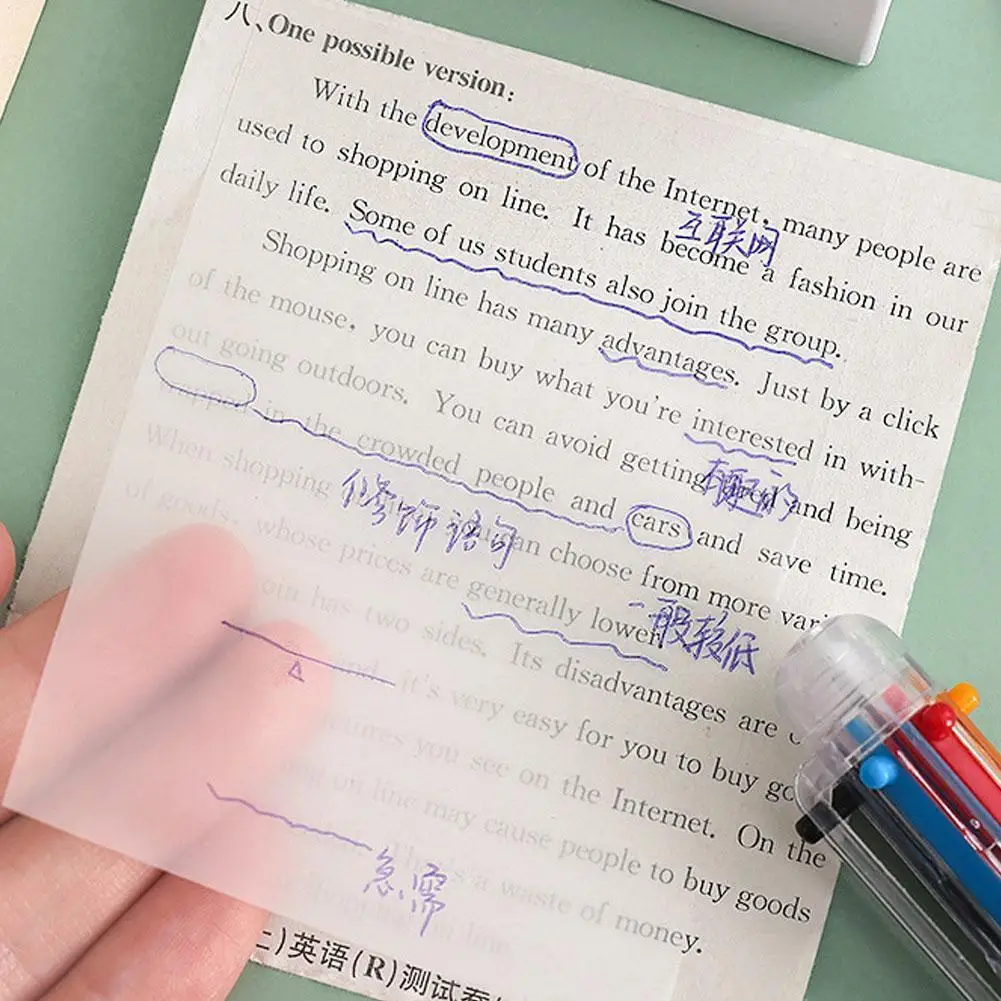 八、One possible version:
With the development of the Internet, many people are
互联网
used to shopping on line. It has become a fashion in our
daily life. Some of us students also join the group.
Shopping on line has many advantages. Just by a click
of the mouse, you can buy what you're interested in with-
out going outdoors. You can avoid getting and being
in the crowded people and cars and save time.
修饰语句
When shopping can choose from more vari
of goods, whose prices are generally lower.
一般较低
has two sides. Its disadvantages are
and it's very easy for you to buy
you see on the Internet. On the
on line may cause people to buy goods
急需
That's a waste of money.
line.
)英语(R)测试卷